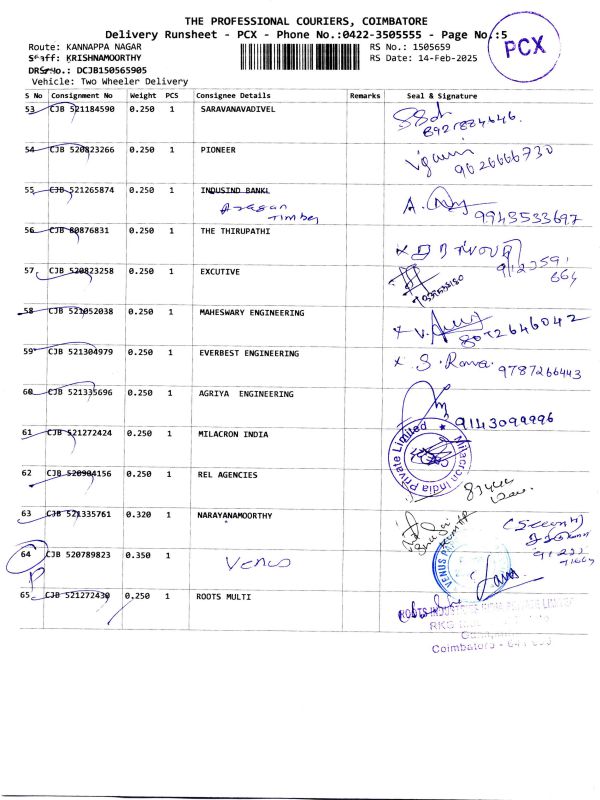 THE PROFESSIONAL COURIERS, COIMBATORE
Delivery Runsheet - PCX - Phone No.:0422-3505555 - Page No.:5
PCX
Route: KANNAPPA NAGAR
RS No.: 1505659
Staff: KRISHNAMOORTHY
RS Date: 14-Feb-2025
DRS No.: DCJB150565905
Vehicle: Two Wheeler Delivery
S No Consignment No Weight PCS Consignee Details Remarks Seal & Signature
53 CJB 521184590 0.250 1 SARAVANAVADIVEL
54 CJB 520823266 0.250 1 PIONEER
9626666730
55 CJB 521265874 0.250 1 INDUSIND BANKL
Azagan
Timber
9943533697
56 CJB 80876831 0.250 1 THE THIRUPATHI
57 CJB 520823258 0.250 1 EXCUTIVE
58 CJB 521052038 0.250 1 MAHESWARY ENGINEERING
8072646042
59 CJB 521304979 0.250 1 EVERBEST ENGINEERING
9787266443
60 CJB 521335696 0.250 1 AGRIYA ENGINEERING
9143099996
61 CJB 521272424 0.250 1 MILACRON INDIA
Milacron India Private Limited
62 CJB 520904156 0.250 1 REL AGENCIES
63 CJB 521335761 0.320 1 NARAYANAMOORTHY
64 CJB 520789823 0.350 1 VENUS
VENUS
65 CJB 521272430 0.250 1 ROOTS MULTI
ROOTS INDUSTRIES INDIA PRIVATE LIMITED
Coimbatore